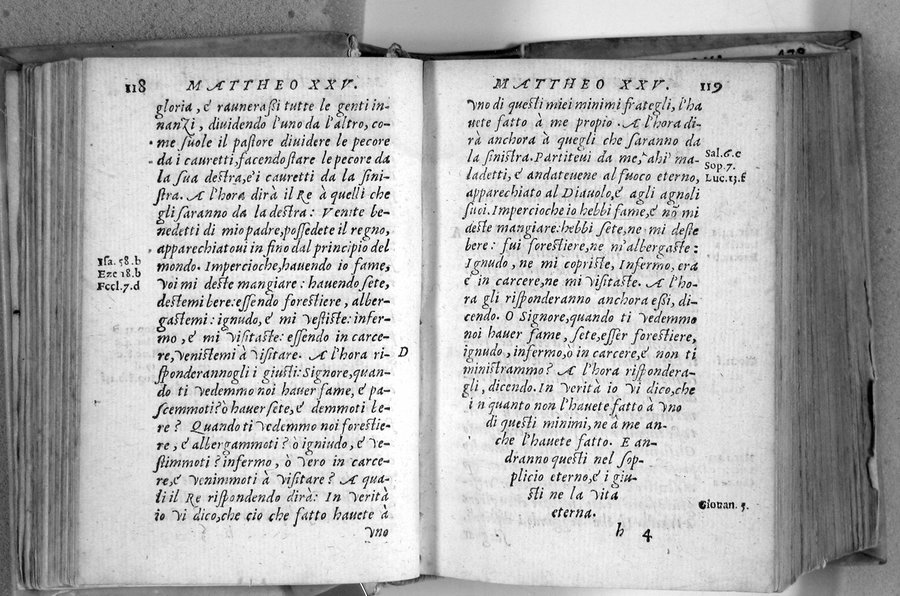 118 MATTHEO XXV.
gloria, é raunerassi tutte le genti in-
nanzi, diuidendo l'uno da l'altro, co-
me suole il pastore diuidere le pecore
da i cauretti, facendo stare le pecore da
la sua destra, e'i cauretti da la sini-
stra. A l'hora dirà il Re à quelli che
gli saranno da la destra: Venite be-
nedetti di mio padre, possedete il regno,
apparechiatoui in fino dal principio del
mondo. Impercioche, hauendo io fame,
voi mi deste mangiare: hauendo sete,
destemi bere: essendo forestiere, alber-
gastemi: ignudo, é mi vestiste: infer-
mo, é mi visitaste: essendo in carce-
re, venistemi à visitare. A l'hora ri-
sponderannogli i giusti: Signore, quan-
do ti vedemmo noi hauer fame, é pa-
scemmoti? ò hauer sete, é demmoti be-
re? Quando ti vedemmo noi forestie-
re, é albergammoti? ò igniudo, é ve-
stimmoti? infermo, ò vero in carce-
re, é venimmoti à visitare? A qua-
li il Re rispondendo dirà: In verità
io vi dico, che cio che fatto hauete à
vno
Isa. 58.b
Eze 18.b
Eccl.7.d
D
MATTHEO XXV. 119
vno di questi miei minimi frategli, l'ha
uete fatto à me propio. A l'hora di-
rà anchora à quegli che saranno da
la sinistra. Partiteui da me, ahi ma-
ladetti, é andateuene al fuoco eterno,
apparechiato al Diauolo, é agli agnoli
suoi. Impercioche io hebbi fame, é nō mi
deste mangiare: hebbi sete, ne mi deste
bere: fui forestiere, ne m'albergaste:
Ignudo, ne mi copriste, Infermo, era
é in carcere, ne mi visitaste. A l'ho-
ra gli risponderanno anchora essi, di-
cendo. O Signore, quando ti vedemmo
noi hauer fame, sete, esser forestiere,
ignudo, infermo, ò in carcere, é non ti
ministrammo? A l'hora risponderà-
gli, dicendo. In verità io vi dico, che
in quanto non l'hauete fatto à vno
di questi minimi, ne à me an-
che l'hauete fatto. E an-
dranno questi nel sop-
plicio eterno, é i giu-
sti ne la vita
eterna.
h 4
Sal.6.c
Sop.7.
Luc.13.f
Giouan. 5.